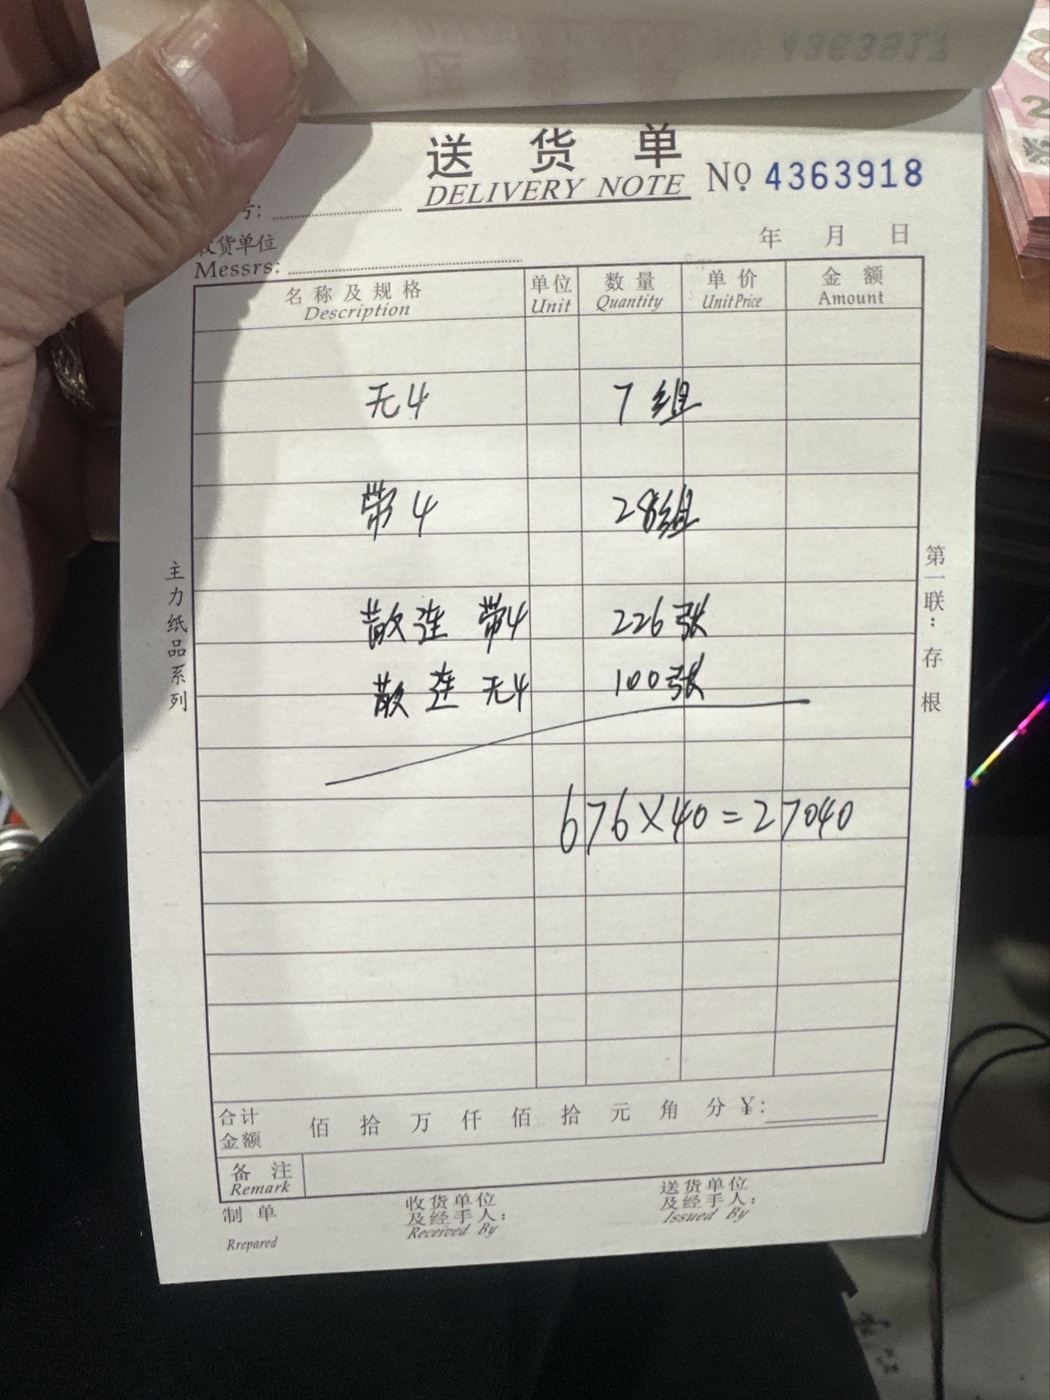 送货单
DELIVERY NOTE
№ 4363918
号:
收货单位
Messrs:
年 月 日
名称及规格 单位 数量 单价 金额
Description Unit Quantity Unit Price Amount
无4 7组
带4 28组
散连 带4 226张
散连 无4 100张
676×40=27040
主力纸品系列
第一联：存根
合计金额 佰 拾 万 仟 佰 拾 元 角 分 ¥:
备注
Remark
制单
Rrepared
收货单位及经手人:
Received By
送货单位及经手人:
Issued By